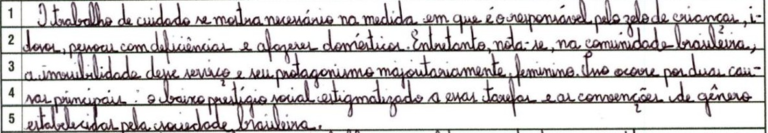 1 O trabalho de cuidado se mostra necessário na medida em que é o responsável pelo zelo de crianças, i-
2 dosos, pessoas com deficiências e afazeres domésticos. Entretanto, nota-se, na comunidade brasileira,
3 a invisibilidade desse serviço e seu protagonismo majoritariamente feminino. Isso ocorre por duas cau-
4 sas principais: o baixo prestígio social estigmatizado a essas tarefas e as convenções de gênero
5 estabelecidas pela sociedade brasileira.